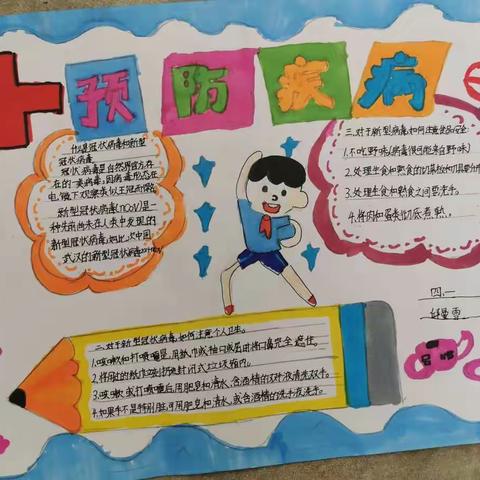 预防疾病
什么是冠状病毒和新型
冠状病毒
冠状病毒是自然界官方存
在的一类病毒,因病毒形态在
电镜下观察类似王冠而得名
新型冠状病毒(nCoV)是一
种先前尚未在人类中发现的
新型冠状病毒,如此次中国
武汉的新型冠状病毒
三、对于新型病毒如何注意
1.不吃野味
2.处理生食和熟食的切菜板和刀具要分开
3.处理生食和熟食之间要洗手。
4.将肉和蛋类彻底煮熟。
四.一
二、对于新型冠状病毒,如何注意个人卫生。
1.咳嗽和打喷嚏是,用纸巾或袖口或屈肘将口鼻完全遮住。
2.将用过的纸巾立刻扔进封闭式垃圾箱内。
3.咳嗽或打喷嚏后,用肥皂和清水,含酒精的双手液清洗双手。
4.如果手不是特别脏,可用肥皂和清水,或含酒精的洗手液洗手。